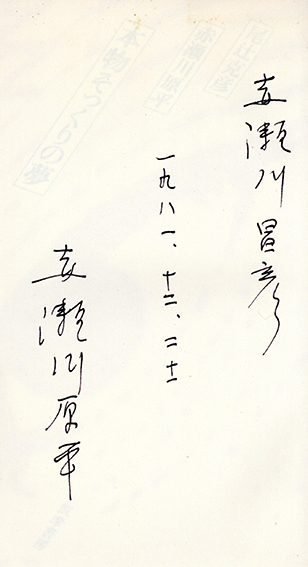 尾辻克彦
赤瀬川原平
本物そっくりの夢
赤瀬川昌彦
一九八一、十二、二十一
赤瀬川原平